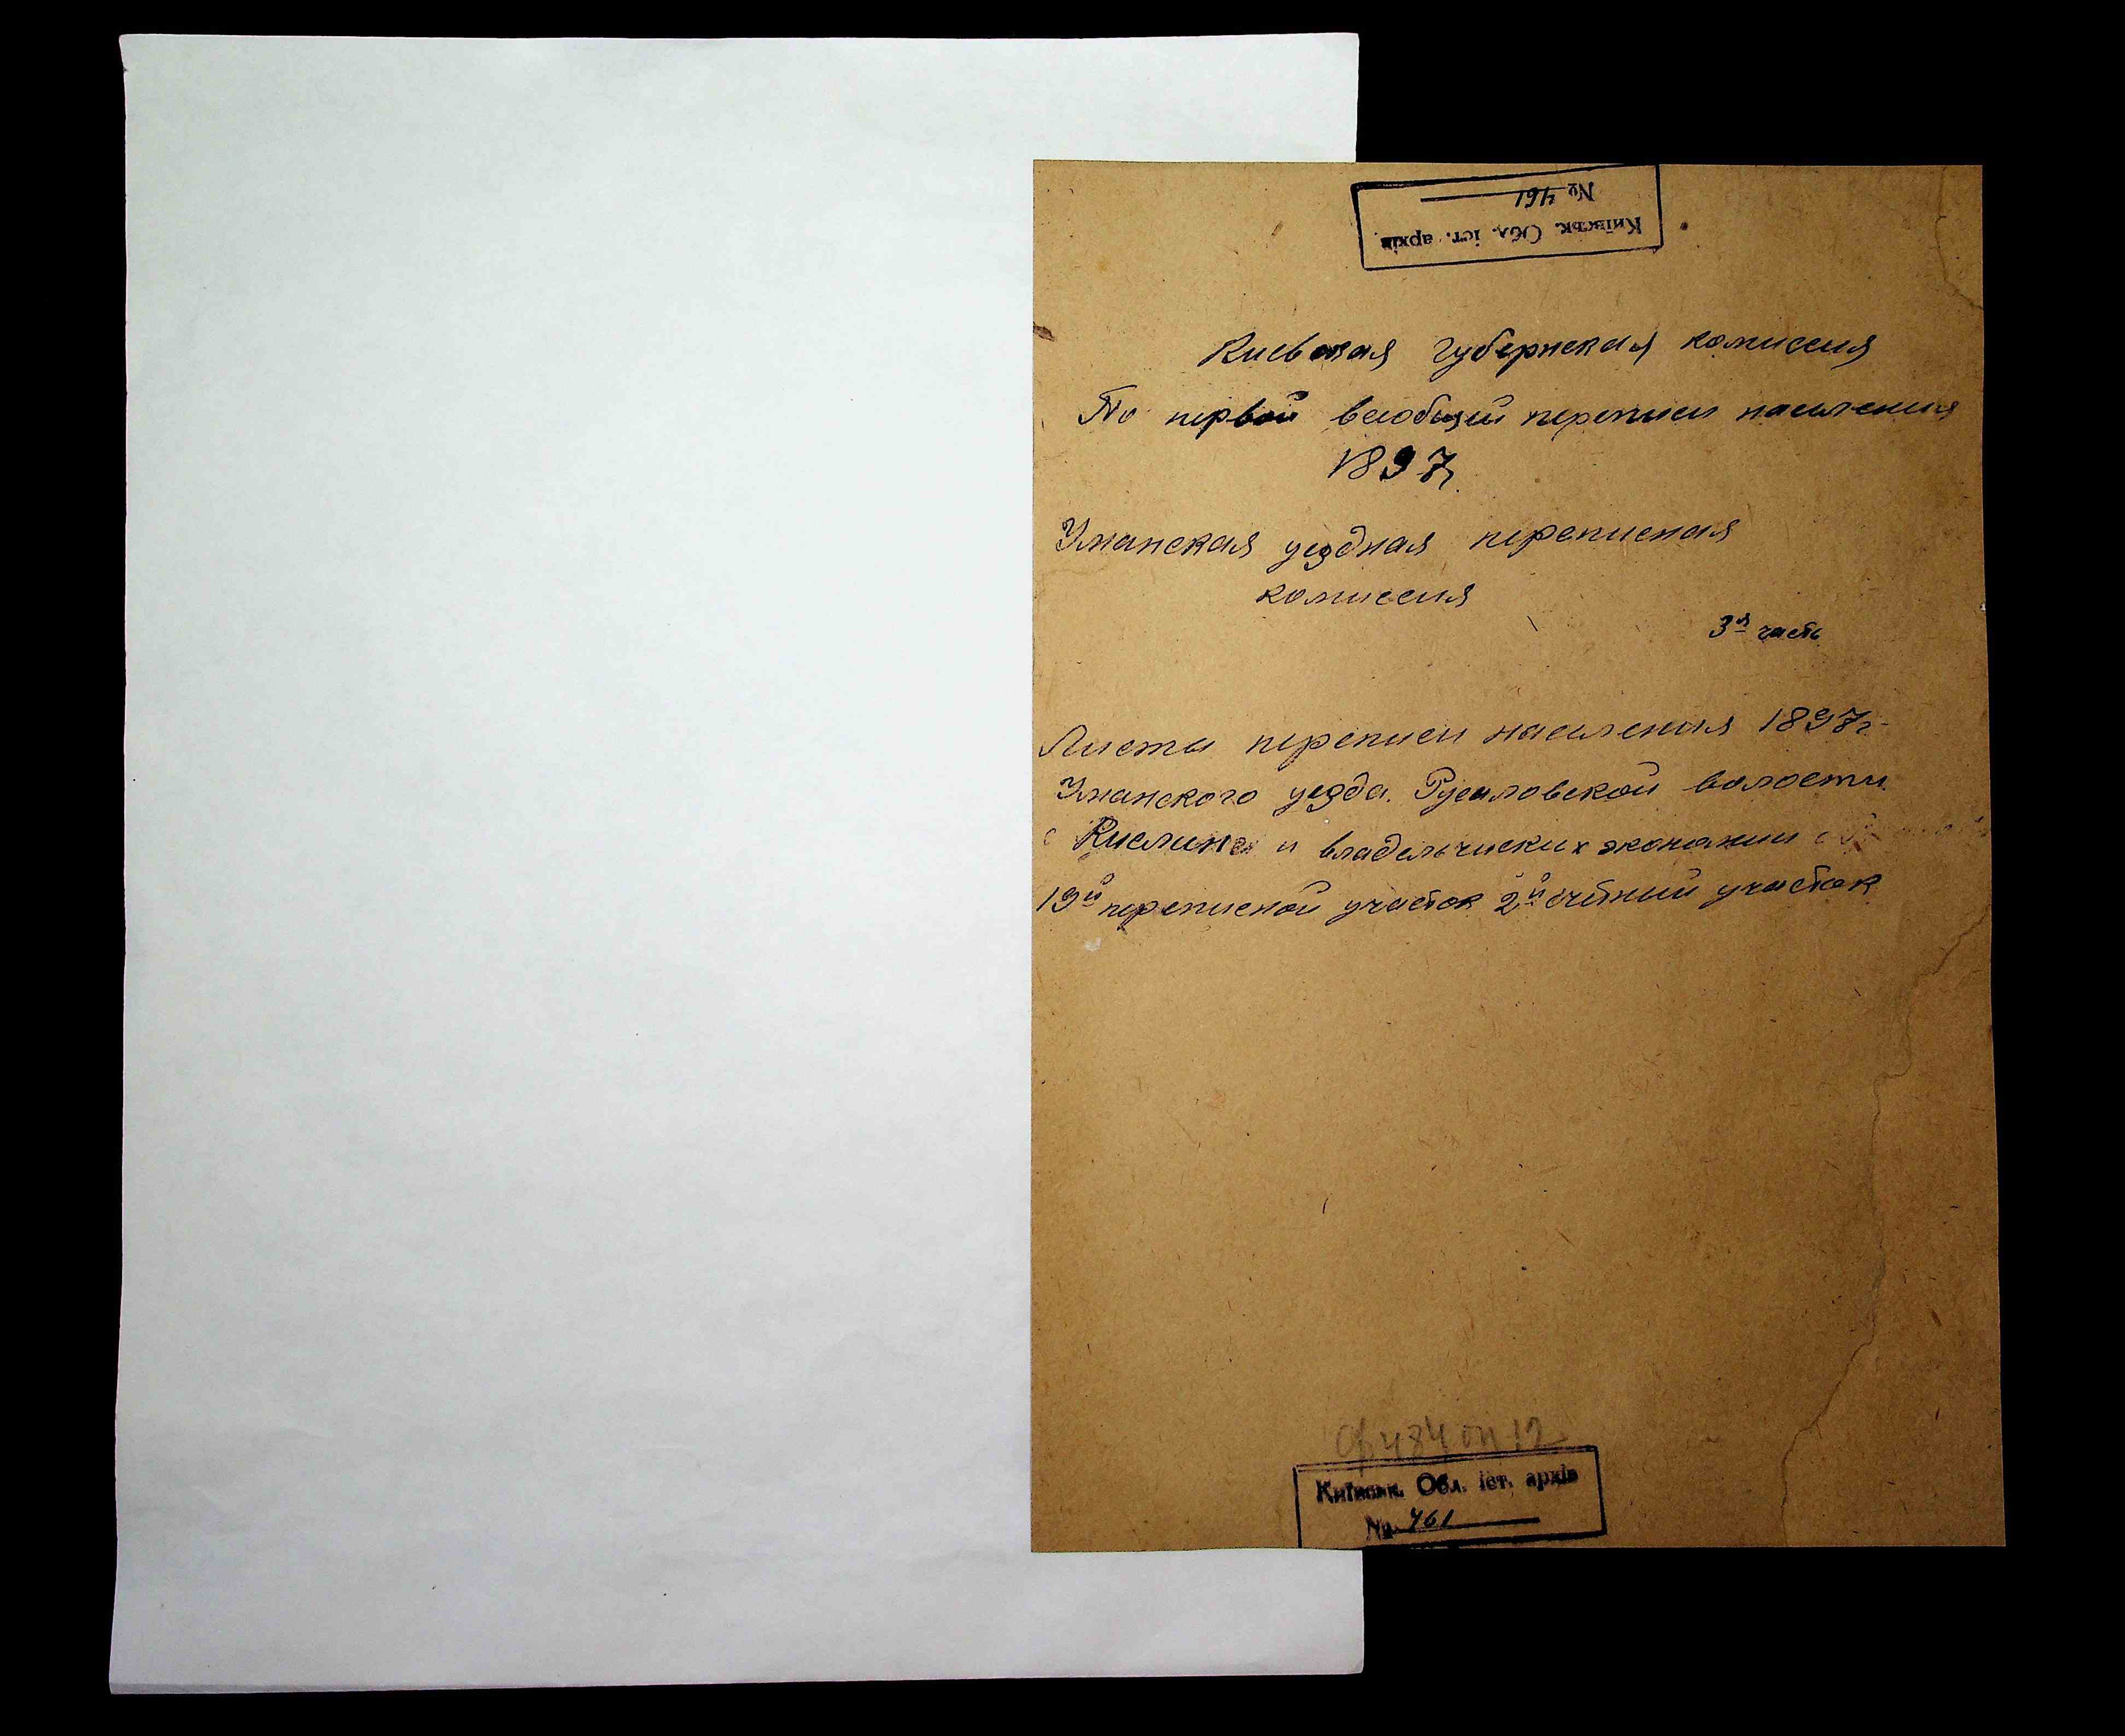 Київськ. Обл. іст. архів
№ 461
Киевская губернская комиссия
По первой всеобщей переписи населения
1897г.
Уманская уездная переписная
комиссия
3я часть
Листы переписи населения 1897г.
Уманского уезда. Русаловской волости.
с Кислин и владельческих экономии с
19й переписной участок 2й счётный участок
ф 484 оп 12
Київськ. Обл. іст. архів
№ 461